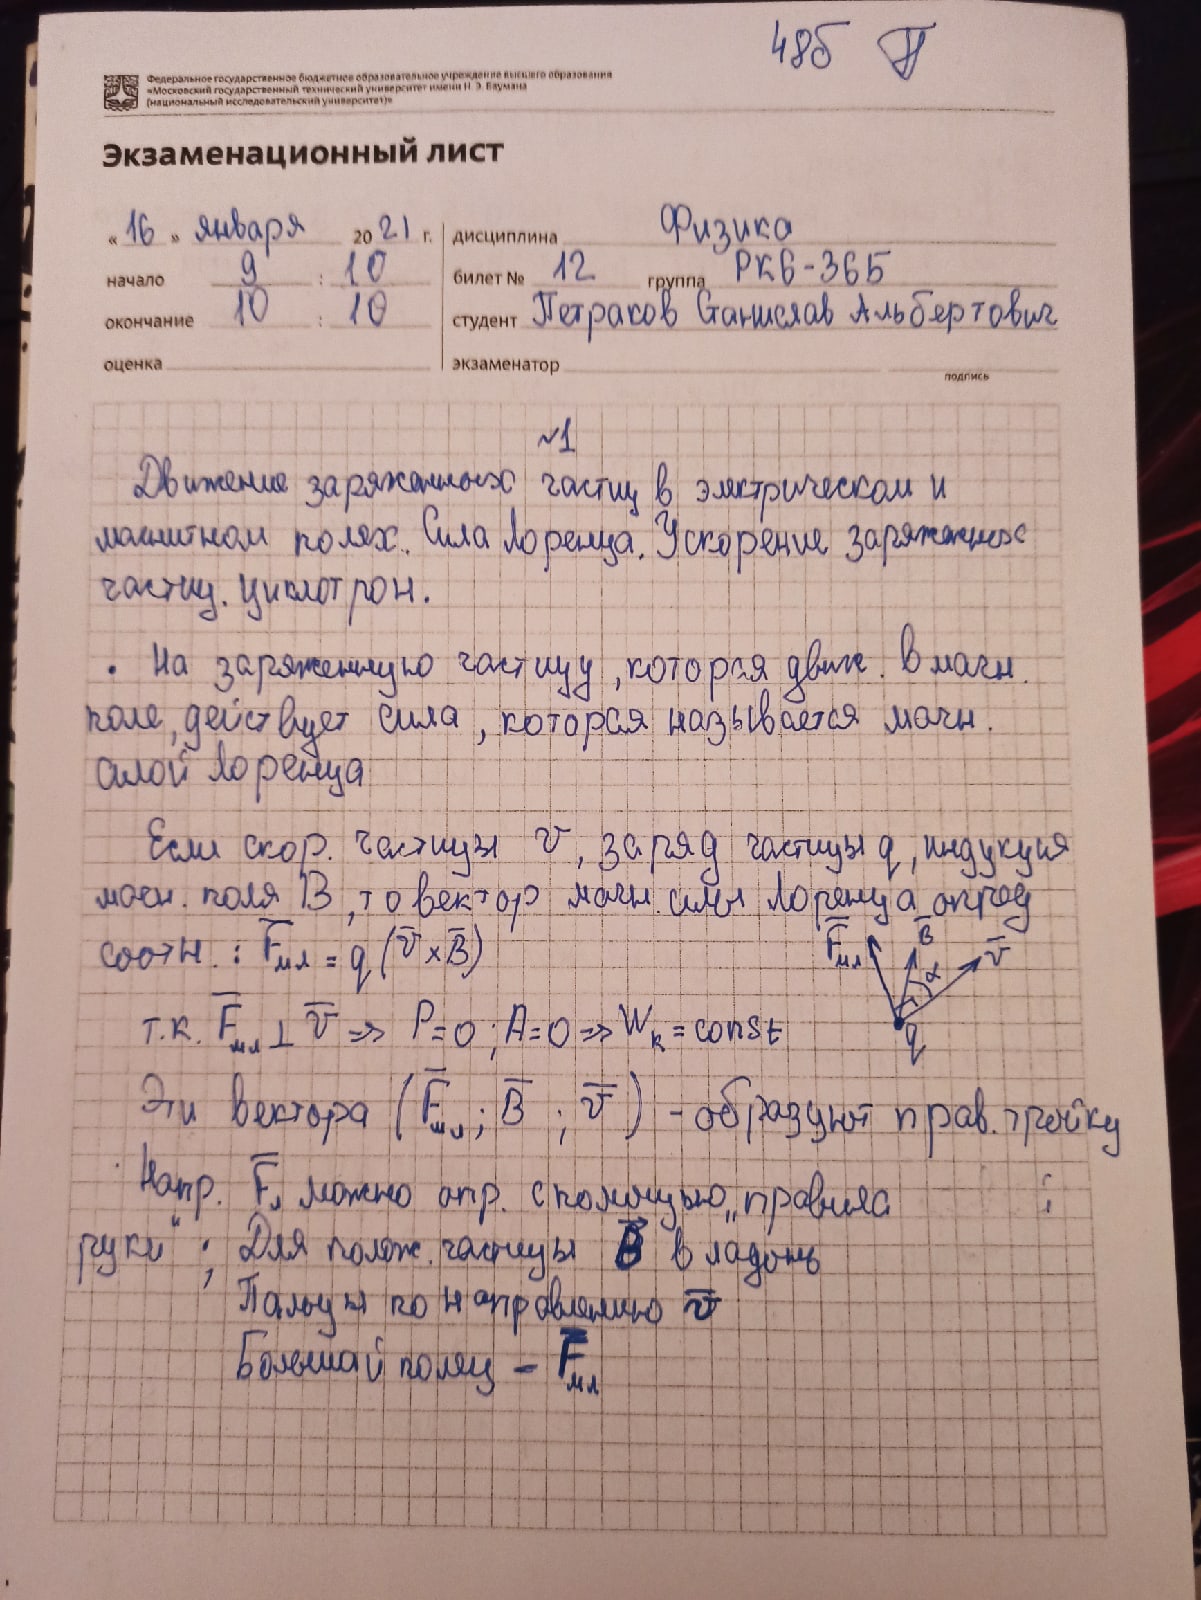 48б
Федеральное государственное бюджетное образовательное учреждение высшего образования
«Московский государственный технический университет имени Н. Э. Баумана
(национальный исследовательский университет)»
Экзаменационный лист
« 16 » января 2021 г. дисциплина Физика
начало 9 : 10 билет № 12 группа РК6-36Б
окончание 10 : 10 студент Петраков Станислав Альбертович
оценка экзаменатор
подпись
№1
Движение заряженных частиц в электрическом и
магнитном полях. Сила Лоренца. Ускорение заряженных
частиц. Циклотрон.
• На заряженную частицу, которая движ. в магн.
поле, действует сила, которая называется магн.
силой Лоренца
Если скор. частицы v, заряд частицы q, индукция
магн. поля B, то вектор магн. силы Лоренца опред
соотн.: F̅мл = q (v̅ × B̅)
F̅мл B̅ v̅
α
q
т.к. F̅мл ⊥ v̅ => P=0; A=0 => Wк = const
Эти вектора (F̅мл; B̅; v̅) - образуют прав. тройку
Напр. F̅л можно опр. с помощью „правила
руки“; Для полож. частицы B̅ в ладонь
Пальцы по направлению v̅
Большой палец - F̅мл